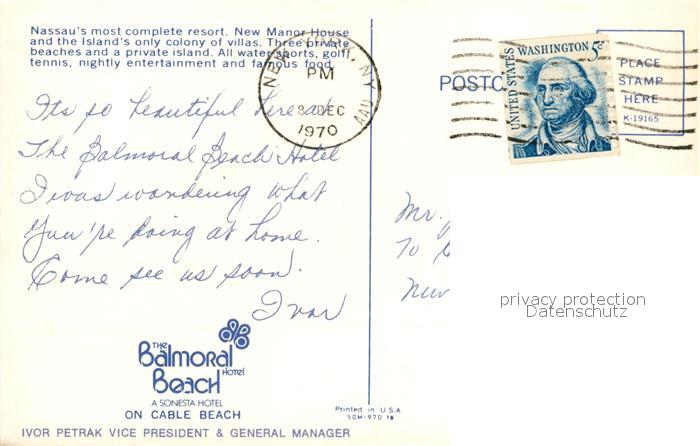 Nassau's most complete resort. New Manor House
and the Island's only colony of villas. Three private
beaches and a private island. All water sports, golf,
tennis, nightly entertainment and famous food.
NEW YORK, N.Y.
PM
8 DEC
1970
POSTC
UNITED STATES
WASHINGTON 5¢
PLACE
STAMP
HERE
K-19165
Its so beautiful here at
The Balmoral Beach Hotel
I was wondering what
You're doing at home.
Come see us soon.
Ivor
Mr.
70
New
privacy protection
Datenschutz
THE
Balmoral
Beach HOTEL
A SONESTA HOTEL
ON CABLE BEACH
Printed in U.S.A.
50M-970
IVOR PETRAK VICE PRESIDENT & GENERAL MANAGER